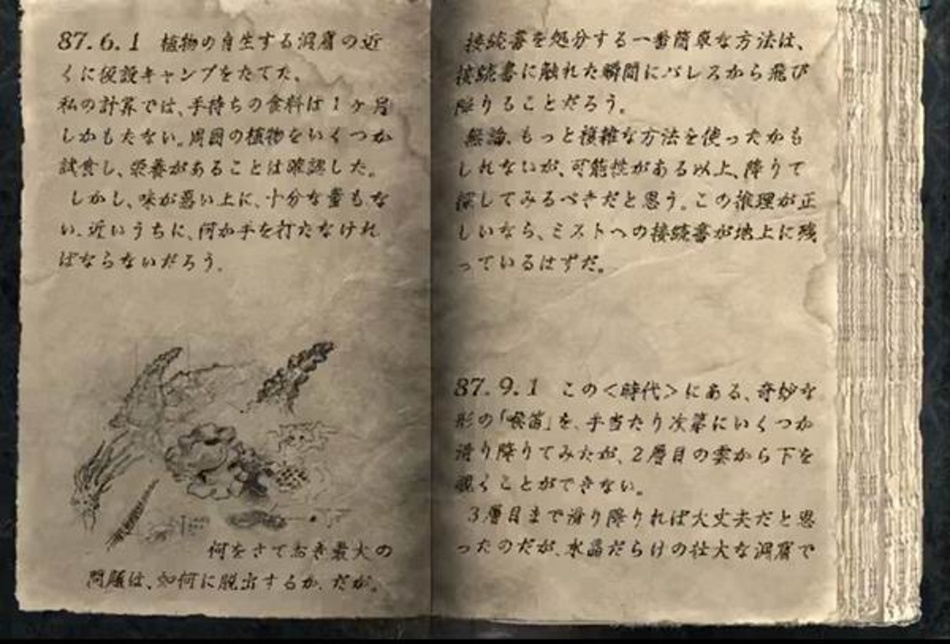 87.6.1 植物の自生する洞窟の近
くに仮設キャンプをたてた。
私の計算では、手持ちの食料は1ヶ月
しかもたない。周囲の植物をいくつか
試食し、栄養があることは確認した。
しかし、味が悪い上に、十分な量もな
い。近いうちに、何か手を打たなけれ
ばならないだろう。
何をさておき最大の
問題は、如何に脱出するか、だが。
接続書を処分する一番簡単な方法は、
接続書に触れた瞬間にバレスから飛び
降りることだろう。
無論、もっと複雑な方法を使ったかも
しれないが、可能性がある以上、降りて
探してみるべきだと思う。この推理が正
しいなら、ミストへの接続書が地上に残
っているはずだ。
87.9.1 この<時代>にある、奇妙な
形の「喉笛」を、手当たり次第にいくつか
滑り降りてみたが、2層目の雲から下を
覗くことができない。
3層目まで滑り降りれば大丈夫だと思
ったのだが、水晶だらけの壮大な洞窟で